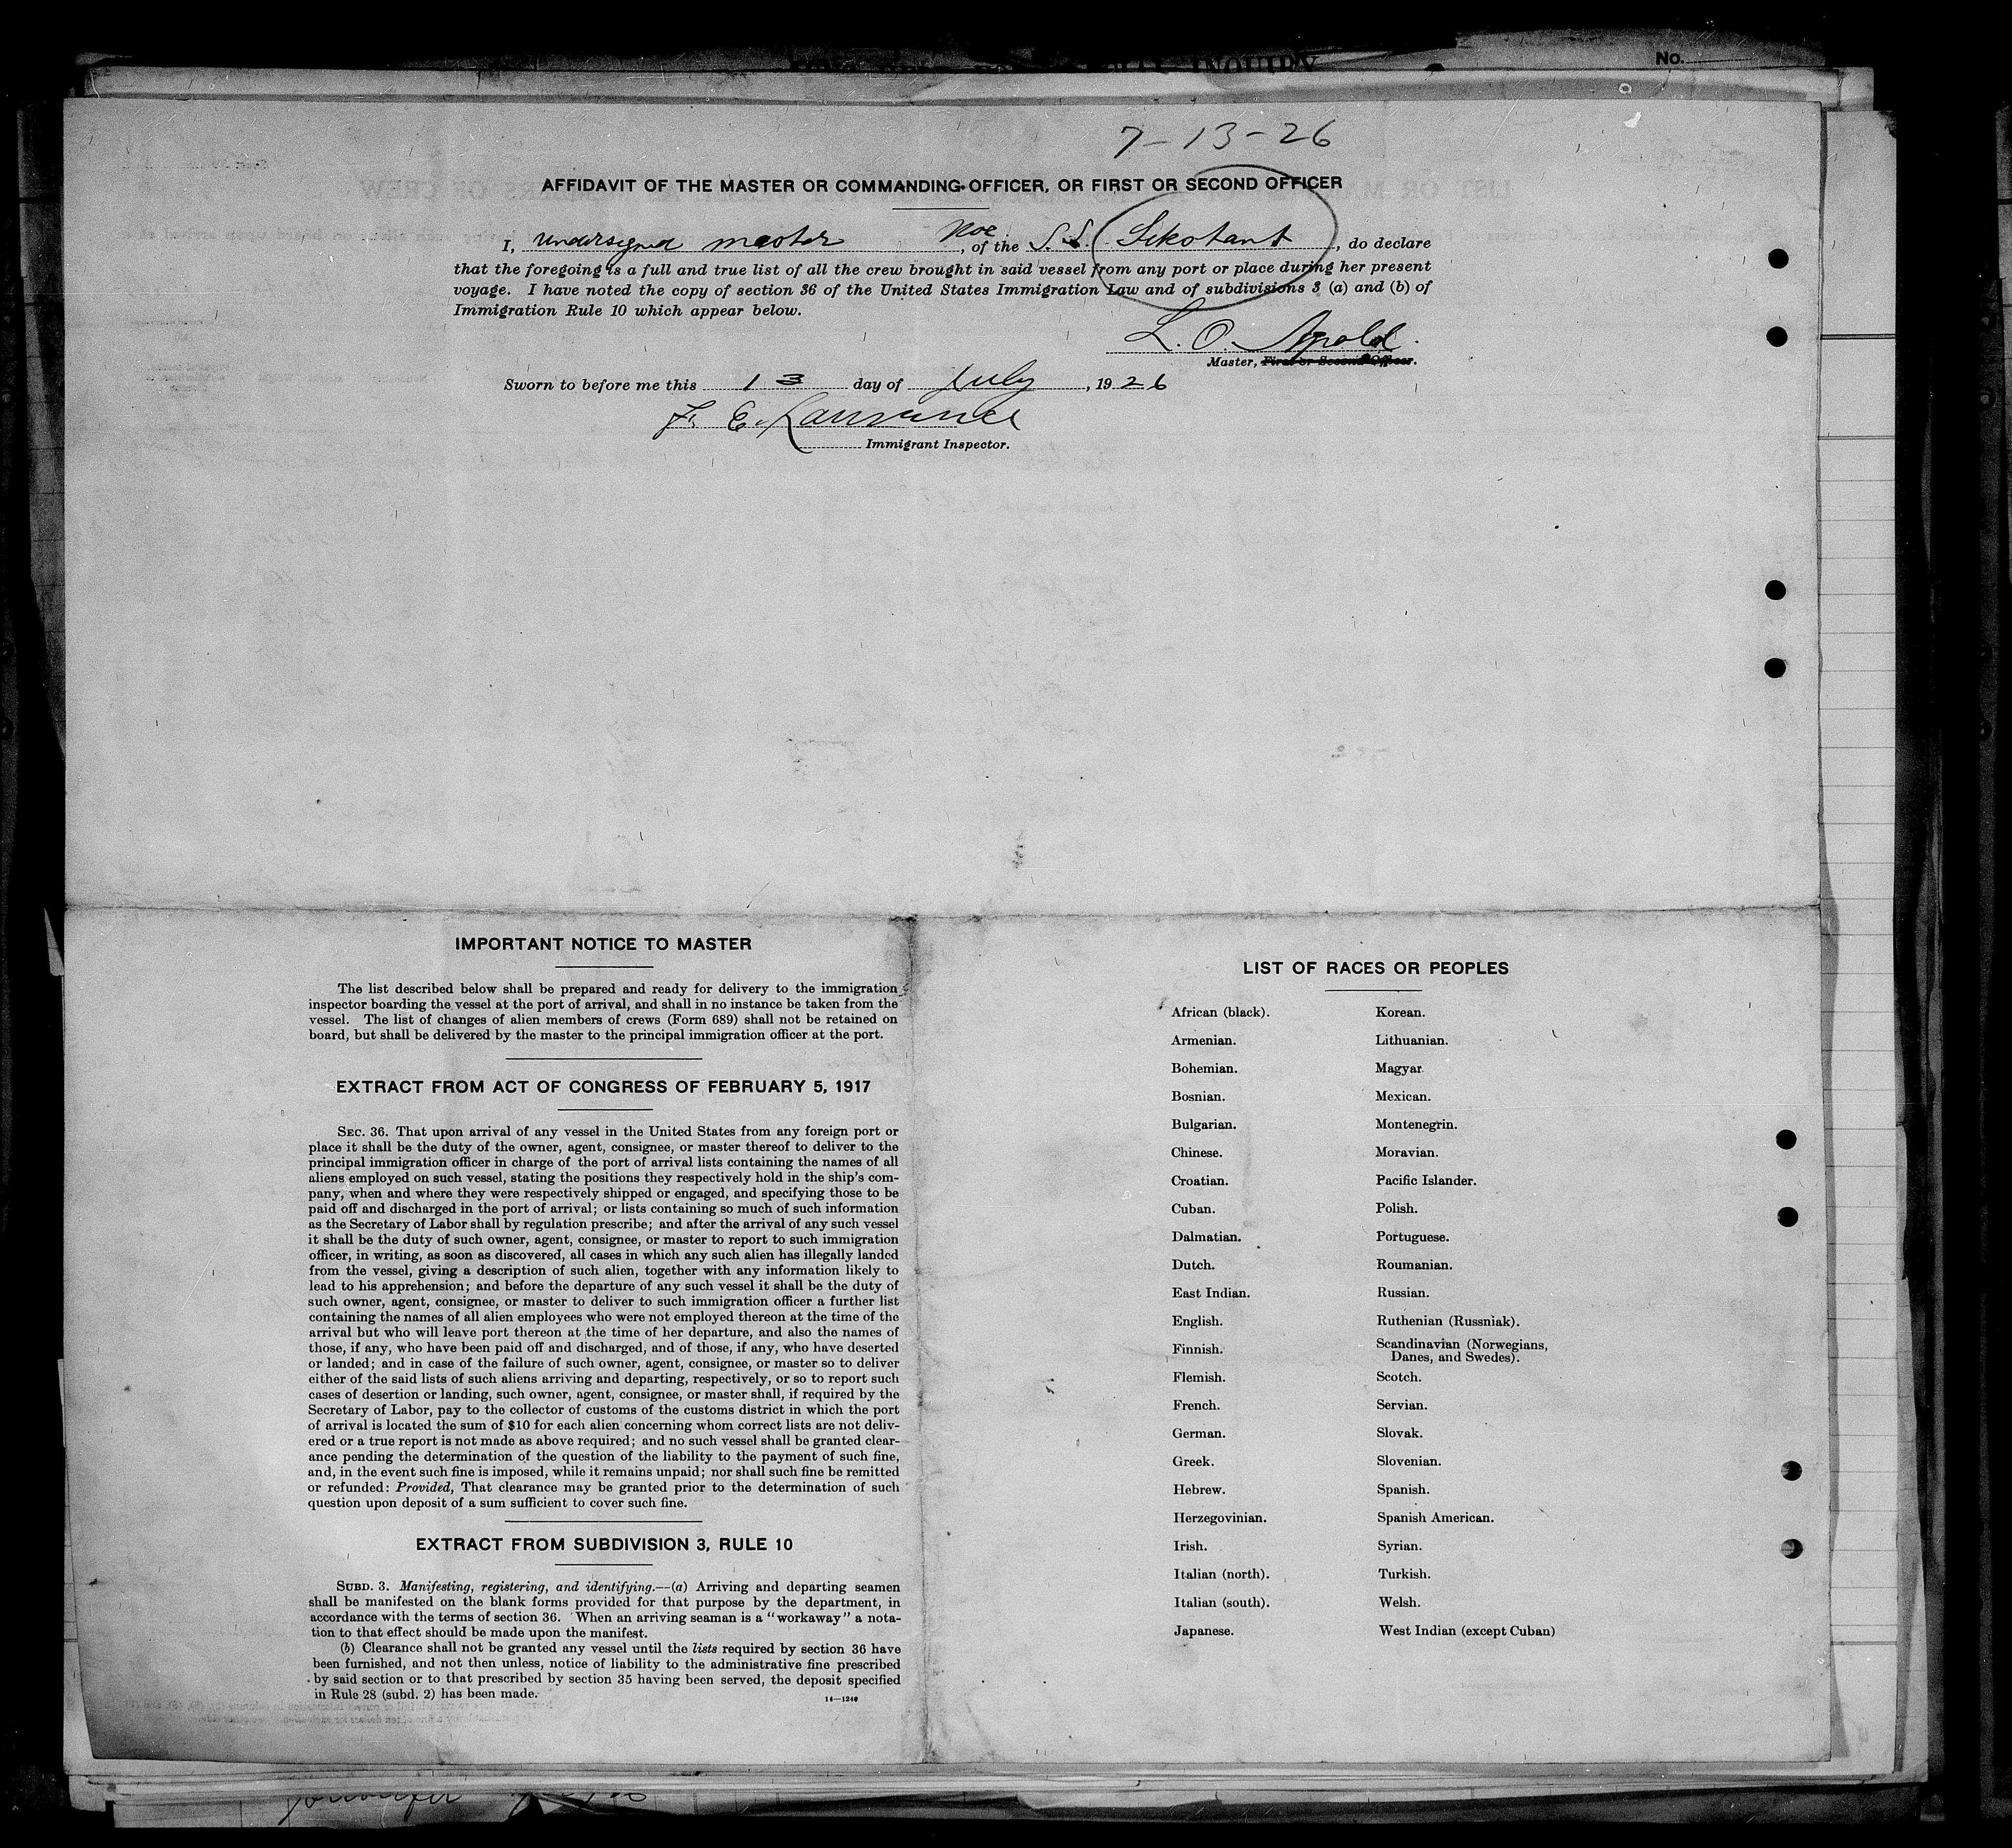 No.
7-13-26
AFFIDAVIT OF THE MASTER OR COMMANDING OFFICER, OR FIRST OR SECOND OFFICER
I, undersigned master, of the S.S. Sikotant, do declare
that the foregoing is a full and true list of all the crew brought in said vessel from any port or place during her present
voyage. I have noted the copy of section 36 of the United States Immigration Law and of subdivisions 3 (a) and (b) of
Immigration Rule 10 which appear below.
L. O.
Master, First or Second Officer.
Sworn to before me this 13 day of July, 1926
F. E. Lawrence
Immigrant Inspector.
IMPORTANT NOTICE TO MASTER
The list described below shall be prepared and ready for delivery to the immigration
inspector boarding the vessel at the port of arrival, and shall in no instance be taken from the
vessel. The list of changes of alien members of crews (Form 689) shall not be retained on
board, but shall be delivered by the master to the principal immigration officer at the port.
EXTRACT FROM ACT OF CONGRESS OF FEBRUARY 5, 1917
SEC. 36. That upon arrival of any vessel in the United States from any foreign port or
place it shall be the duty of the owner, agent, consignee, or master thereof to deliver to the
principal immigration officer in charge of the port of arrival lists containing the names of all
aliens employed on such vessel, stating the positions they respectively hold in the ship's com-
pany, when and where they were respectively shipped or engaged, and specifying those to be
paid off and discharged in the port of arrival; or lists containing so much of such information
as the Secretary of Labor shall by regulation prescribe; and after the arrival of any such vessel
it shall be the duty of such owner, agent, consignee, or master to report to such immigration
officer, in writing, as soon as discovered, all cases in which any such alien has illegally landed
from the vessel, giving a description of such alien, together with any information likely to
lead to his apprehension; and before the departure of any such vessel it shall be the duty of
such owner, agent, consignee, or master to deliver to such immigration officer a further list
containing the names of all alien employees who were not employed thereon at the time of the
arrival but who will leave port thereon at the time of her departure, and also the names of
those, if any, who have been paid off and discharged, and of those, if any, who have deserted
or landed; and in case of the failure of such owner, agent, consignee, or master so to deliver
either of the said lists of such aliens arriving and departing, respectively, or so to report such
cases of desertion or landing, such owner, agent, consignee, or master shall, if required by the
Secretary of Labor, pay to the collector of customs of the customs district in which the port
of arrival is located the sum of $10 for each alien concerning whom correct lists are not deliv-
ered or a true report is not made as above required; and no such vessel shall be granted clear-
ance pending the determination of the question of the liability to the payment of such fine,
and, in the event such fine is imposed, while it remains unpaid; nor shall such fine be remitted
or refunded: Provided, That clearance may be granted prior to the determination of such
question upon deposit of a sum sufficient to cover such fine.
EXTRACT FROM SUBDIVISION 3, RULE 10
SUBD. 3. Manifesting, registering, and identifying.—(a) Arriving and departing seamen
shall be manifested on the blank forms provided for that purpose by the department, in
accordance with the terms of section 36. When an arriving seaman is a "workaway" a nota-
tion to that effect should be made upon the manifest.
(b) Clearance shall not be granted any vessel until the lists required by section 36 have
been furnished, and not then unless, notice of liability to the administrative fine prescribed
by said section or to that prescribed by section 35 having been served, the deposit specified
in Rule 28 (subd. 2) has been made.
14—1240
LIST OF RACES OR PEOPLES
African (black).
Armenian.
Bohemian.
Bosnian.
Bulgarian.
Chinese.
Croatian.
Cuban.
Dalmatian.
Dutch.
East Indian.
English.
Finnish.
Flemish.
French.
German.
Greek.
Hebrew.
Herzegovinian.
Irish.
Italian (north).
Italian (south).
Japanese.
Korean.
Lithuanian.
Magyar.
Mexican.
Montenegrin.
Moravian.
Pacific Islander.
Polish.
Portuguese.
Roumanian.
Russian.
Ruthenian (Russniak).
Scandinavian (Norwegians,
Danes, and Swedes).
Scotch.
Servian.
Slovak.
Slovenian.
Spanish.
Spanish American.
Syrian.
Turkish.
Welsh.
West Indian (except Cuban)